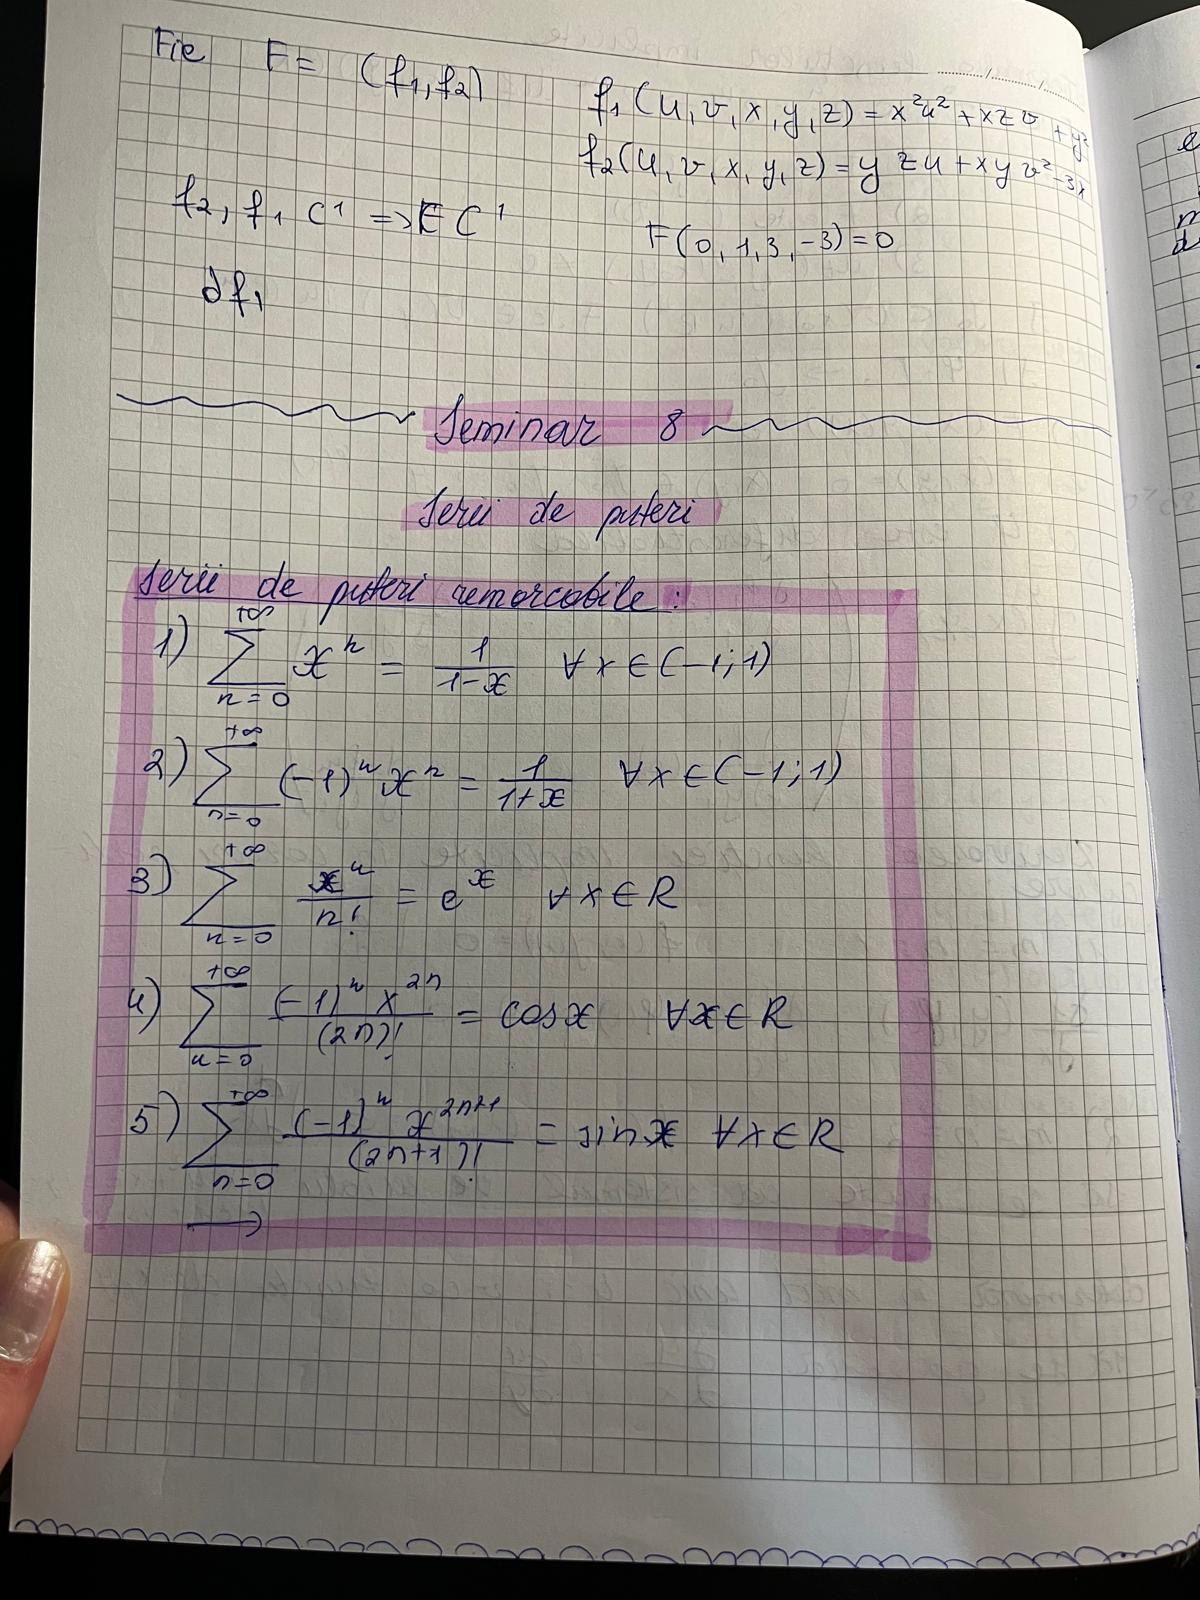 Fie F = (f₁, f₂)
f₁(u, v, x, y, z) = x²u² + xzv + y²
f₂(u, v, x, y, z) = yzu + xyv² - 3x
f₂, f₁ C¹ => F C¹
F(0, 1, 3, -3) = 0
∂f₁
Seminar 8
Serii de puteri
Serii de puteri remarcabile:
1) ∑_{n=0}^{+∞} xⁿ = 1/(1-x) ∀x∈(-1;1)
2) ∑_{n=0}^{+∞} (-1)ⁿxⁿ = 1/(1+x) ∀x∈(-1;1)
3) ∑_{n=0}^{+∞} xⁿ/n! = eˣ ∀x∈R
4) ∑_{n=0}^{+∞} (-1)ⁿx²ⁿ/(2n)! = cosx ∀x∈R
5) ∑_{n=0}^{+∞} (-1)ⁿx²ⁿ⁺¹/(2n+1)! = sinx ∀x∈R
→